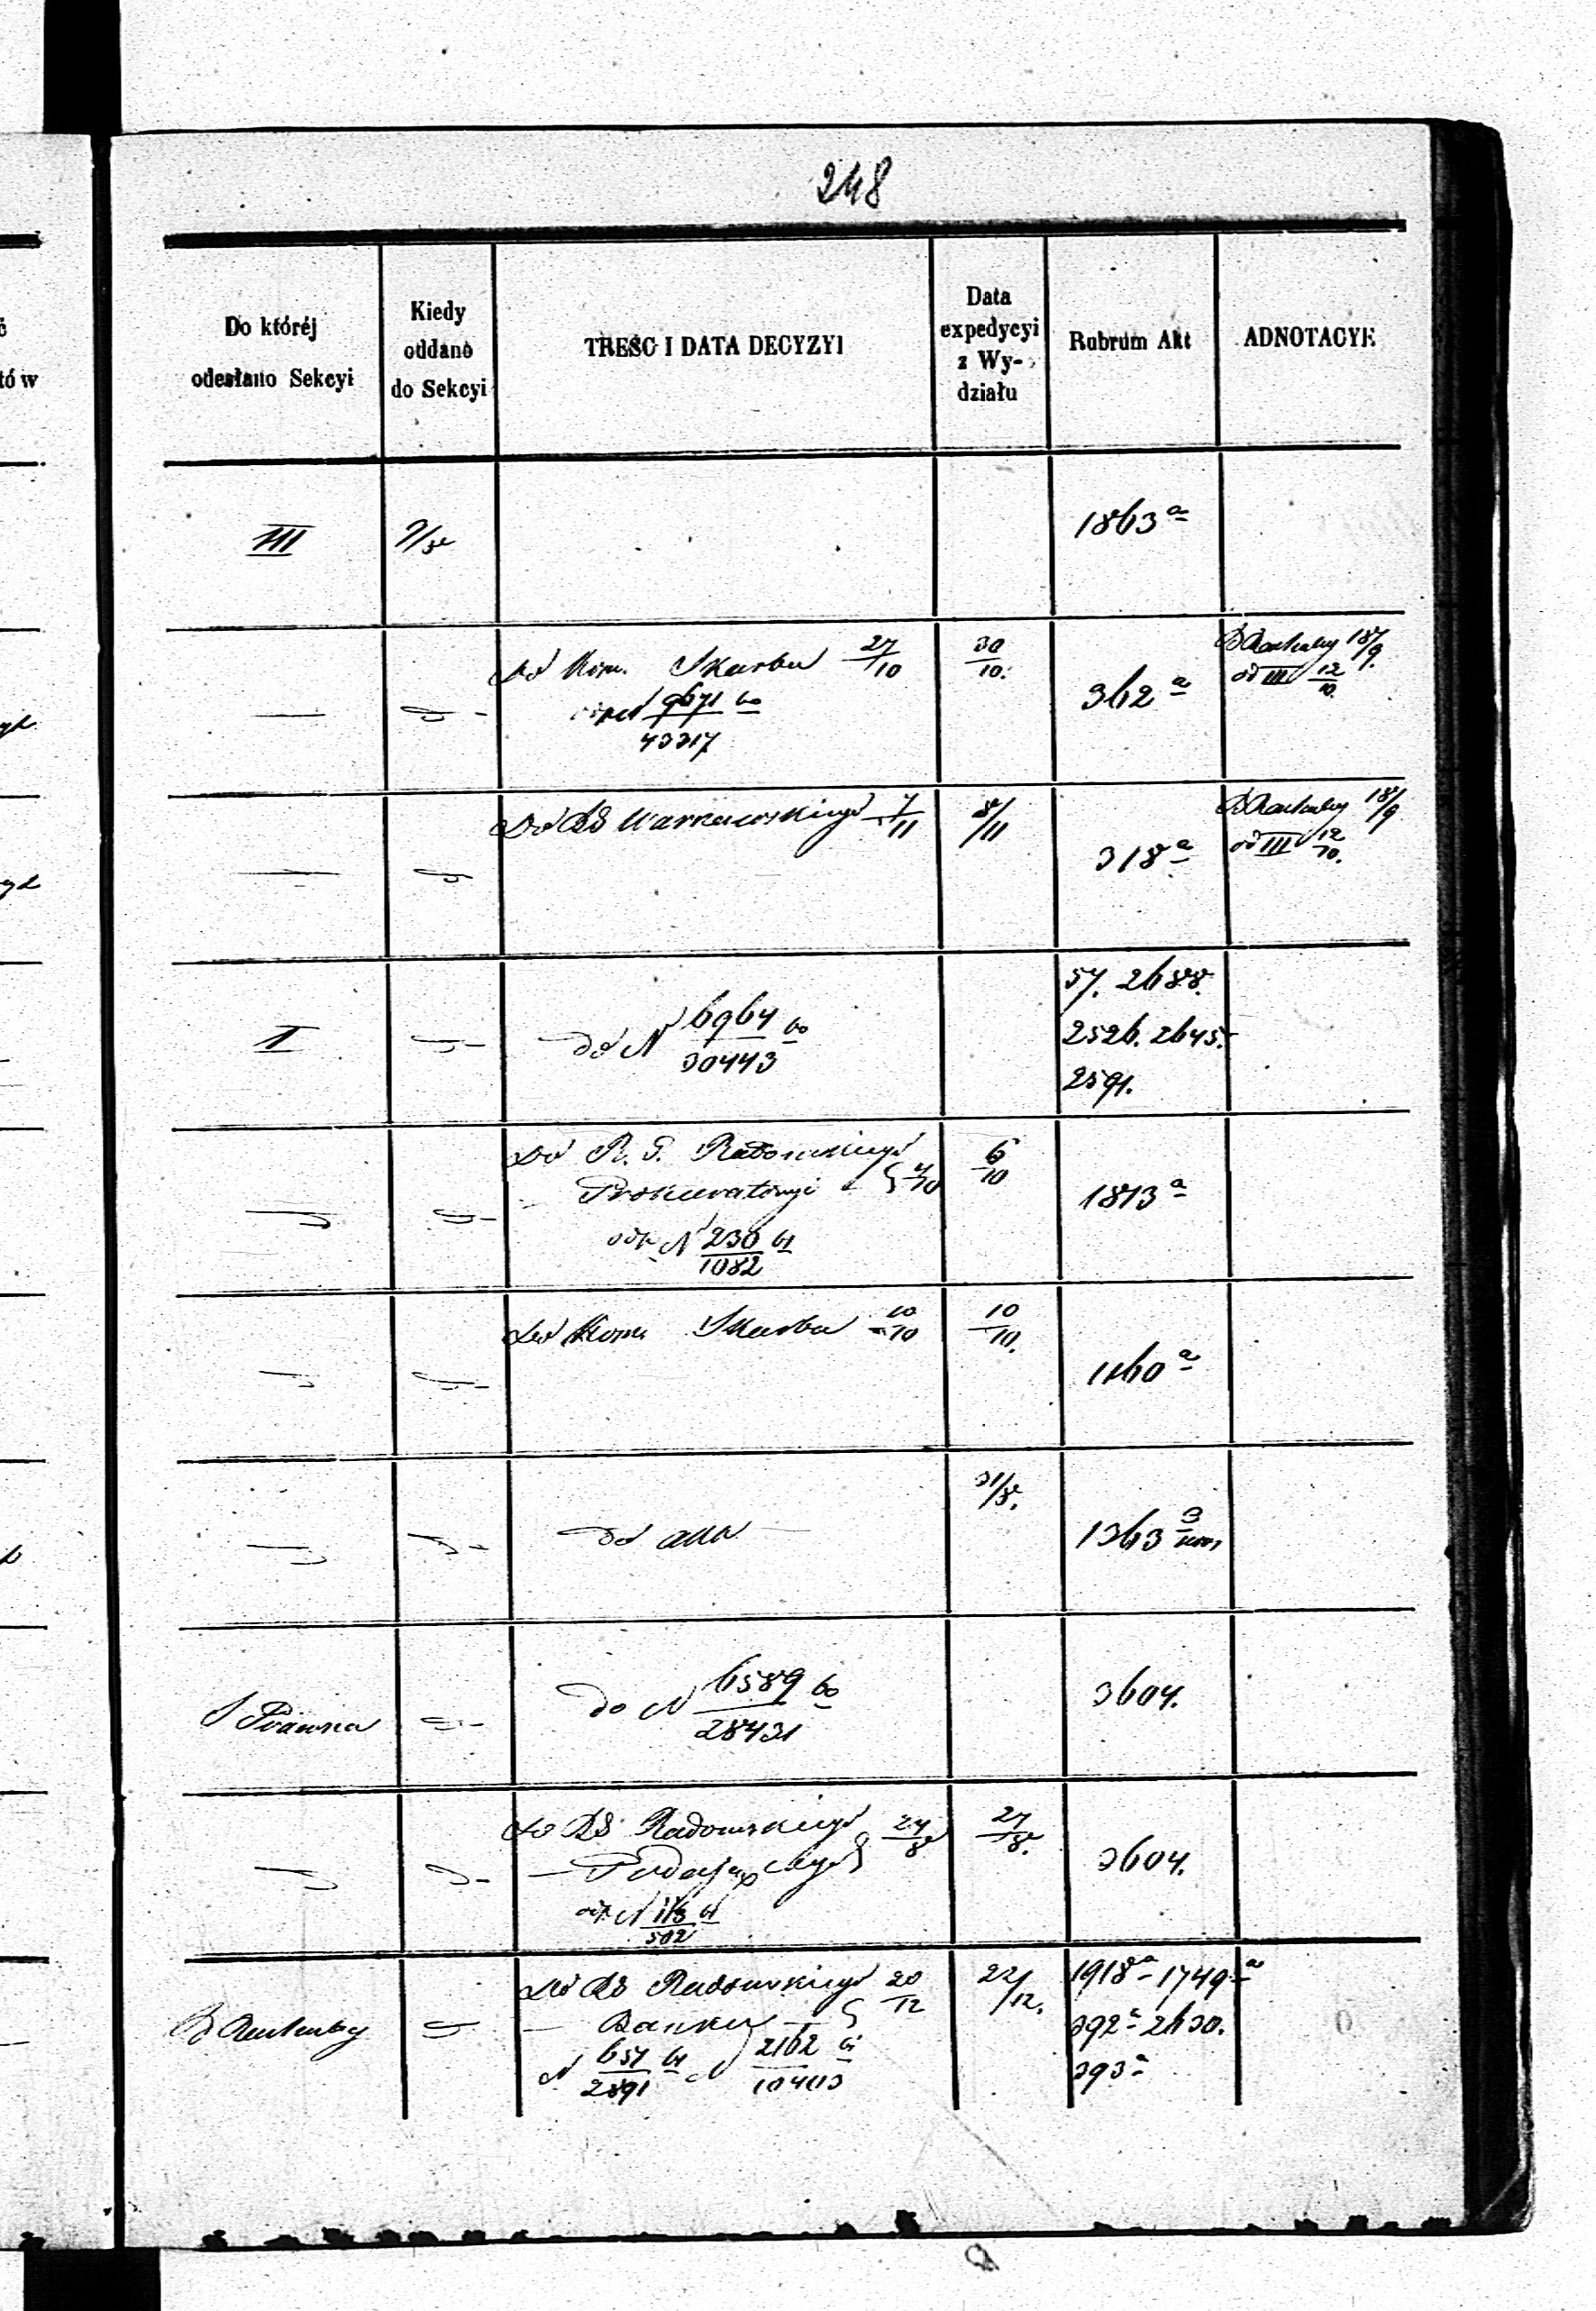 248
Do któréj
odesłano Sekcyi
Kiedy
oddano
do Sekcyi
TREŚC I DATA DECYZYI
Data
expedycyi
z Wy-
działu
Rubrum Akt
ADNOTACYE
III
9/8
1863 a
Do Kom. Skarbu 27/10
30/10.
odp N 9671 60
43317
362 a
18/9.
od III 12/10.
Do RG Warszawskiego 7/11
8/11
318 a
18/9
od III 12/10.
I
do N 6964 60
30443
57. 2688.
2526. 2645.
2591.
Do R. G. Radomskiego
Prokuratoryi 4/10
6/10
odp N 230 61
1082
1813 a
Do Kom Skarbu 10/10
10/10.
1160 a
do akt
31/8.
1363
S Prawna
do N 6589 60
28431
3604.
Do RG Radomskiego 24/8
27/8.
odp N 113 61
502
3604.
Do RG Radomskiego 20/12
22/12.
Banku
N 657 61 N 2162 61
2891 10403
1918 a 1749 a
392 a 2630.
393 a